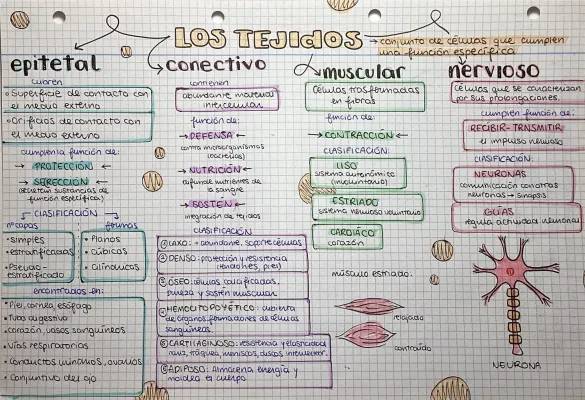 LOS TEJIDOS
→ conjunto de células que cumplen
una función específica
epitetal
cubren
• Superficie de contacto con
el medio externo
• Orificios de contacto con
el medio externo
cumplen la función de:
→ PROTECCIÓN ←
→ SECRECIÓN ←
(secretan sustancias de
función específica)
→ CLASIFICACIÓN
nºcapas
formas
• simples
• estratificadas
• Pseudo-
estratificado
• Planos
• Cúbicos
• Cilíndricos
encontrados en:
• Piel, cornea, esófago
• Tubo digestivo
• corazón, vasos sanguíneos
• Vías respiratorias
• Conductos urinarios, ovarios
• Conjuntiva del ojo
conectivo
contienen
abundante material
intercelular
función de:
→ DEFENSA ←
contra microorganismos
(bacterias)
→ NUTRICIÓN ←
difunde nutrientes de
la sangre
→ SOSTÉN ←
integración de tejidos
CLASIFICACIÓN
① LAXO: + abundante, soporte células
② DENSO: protección y resistencia
(tendones, piel)
③ ÓSEO: células calcificadas,
dureza y sostén muscular
④ HEMOCITOPOYÉTICO: cubierta
de órganos formadores de células
sanguíneas.
⑤ CARTILAGINOSO: resistencia y elasticidad
nariz, tráquea, meniscos, discos intervertebr.
⑥ ADIPOSO: Almacena energía y
moldea el cuerpo
muscular
Células trasformadas
en fibras
función de:
→ CONTRACCIÓN ←
CLASIFICACIÓN:
LISO
sistema autonómico
(involuntario)
ESTRIADO
sistema nervioso voluntario
CARDÍACO
corazón
músculo estriado:
relajado
contraído
nervioso
Células que se caracterizan
por sus prolongaciones.
cumplen función de:
RECIBIR-TRANSMITIR
el impulso nervioso
CLASIFICACIÓN:
NEURONAS
comunicación con otras
neuronas → sinapsis
GLÍAS
regula actividad neuronal
NEURONA